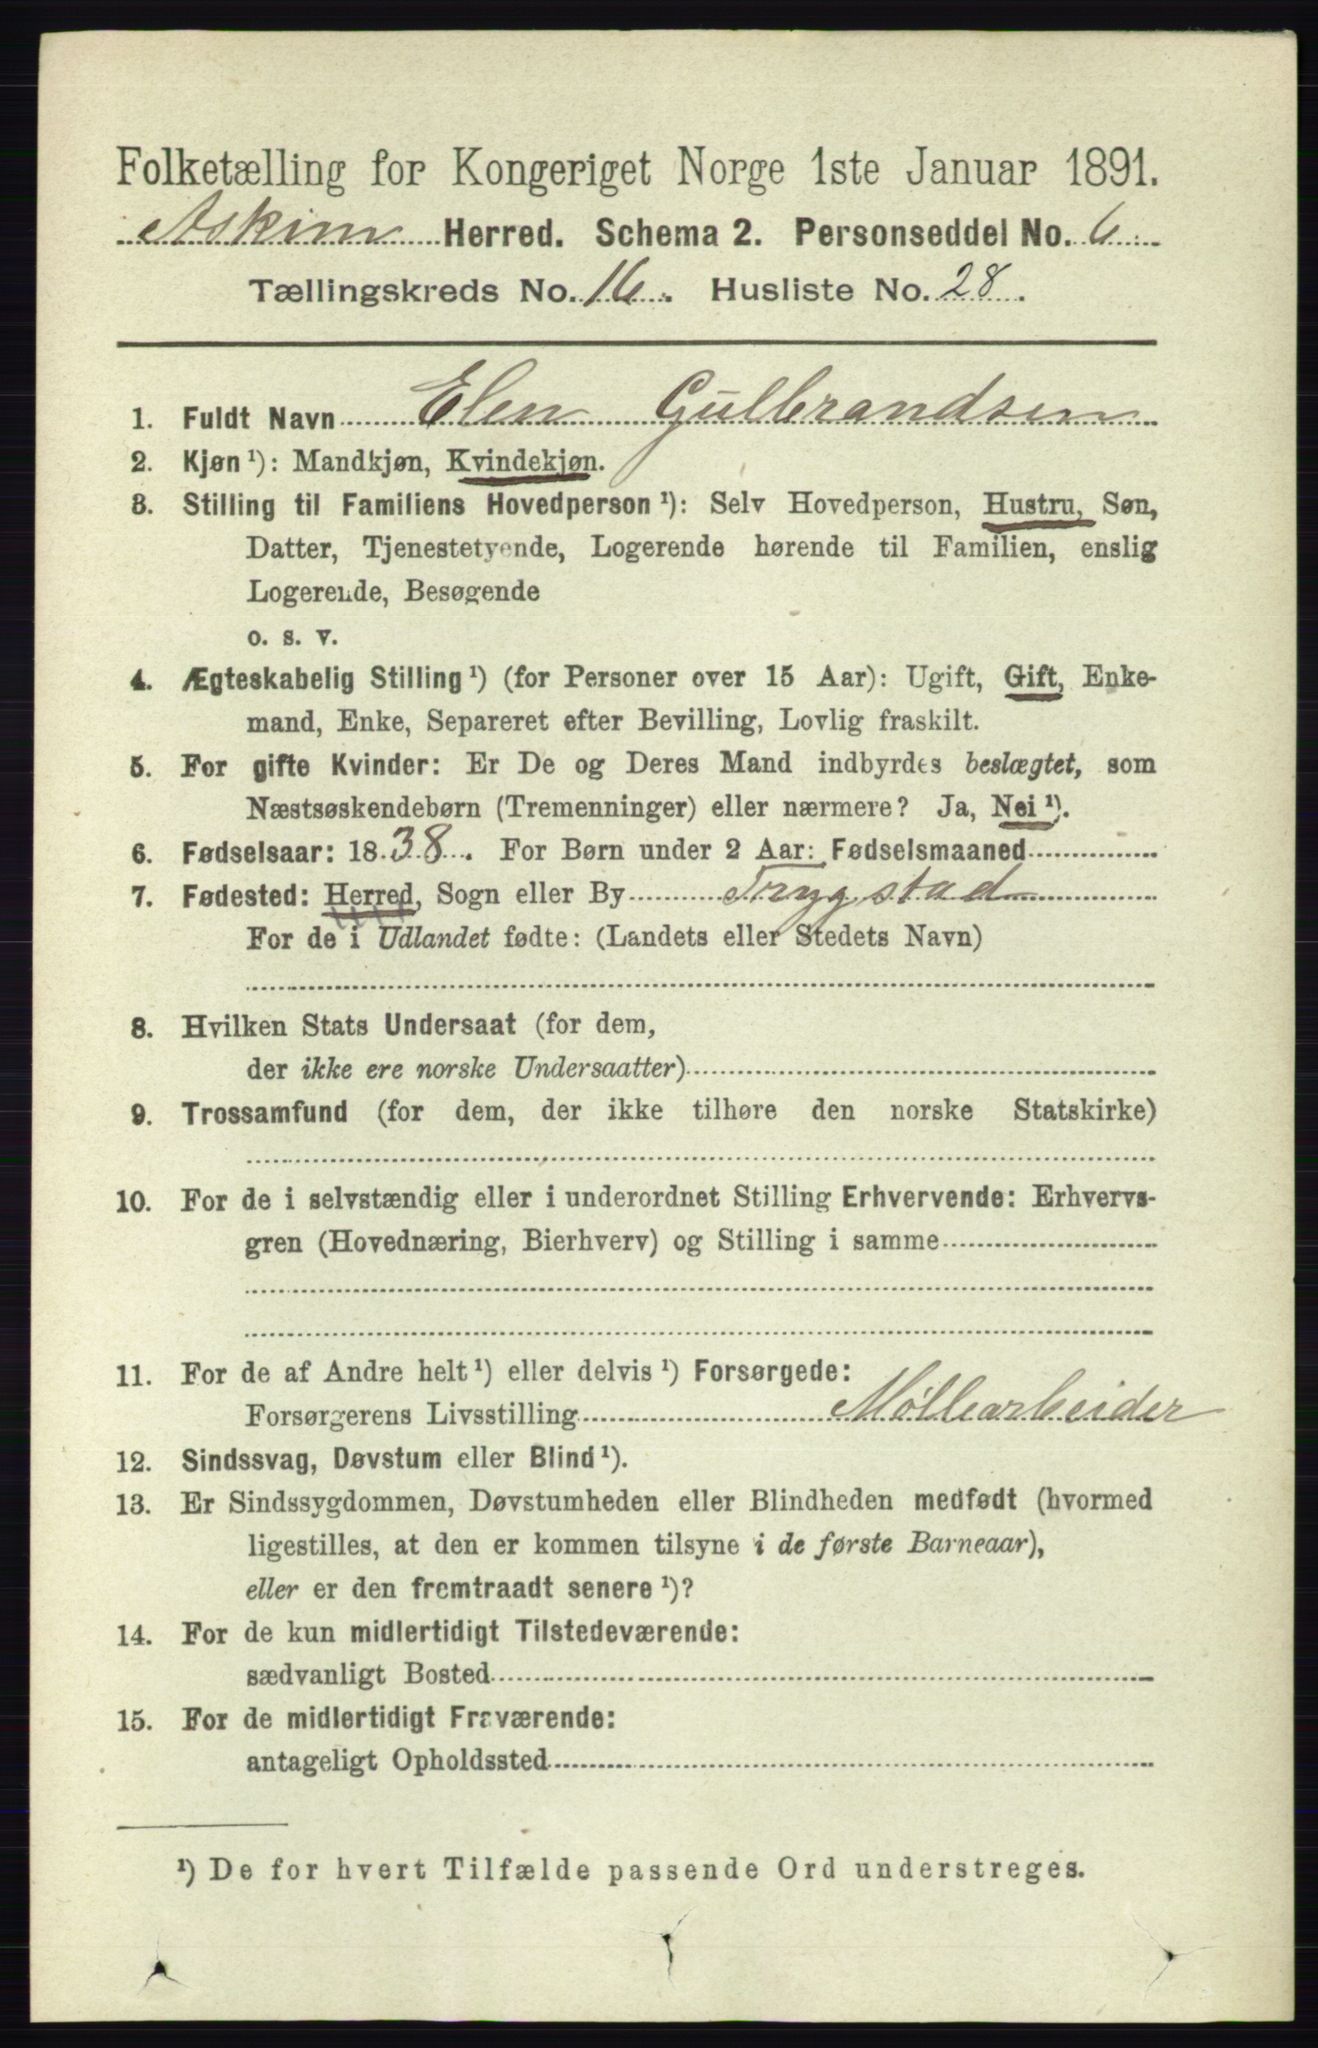 Folketælling for Kongeriget Norge 1ste Januar 1891.
Askim Herred. Schema 2. Personseddel No. 6.
Tællingskreds No. 16. Husliste No. 28.
1. Fuldt Navn Elen Gulbrandsen
2. Kjøn ¹): Mandkjøn, Kvindekjøn.
3. Stilling til Familiens Hovedperson ¹): Selv Hovedperson, Hustru, Søn,
Datter, Tjenestetyende, Logerende hørende til Familien, enslig
Logerende, Besøgende
o. s. v.
4. Ægteskabelig Stilling ¹) (for Personer over 15 Aar): Ugift, Gift, Enke-
mand, Enke, Separeret efter Bevilling, Lovlig fraskilt.
5. For gifte Kvinder: Er De og Deres Mand indbyrdes beslægtet, som
Næstsøskendebørn (Tremenninger) eller nærmere? Ja, Nei ¹).
6. Fødselsaar: 1838. For Børn under 2 Aar: Fødselsmaaned
7. Fødested: Herred, Sogn eller By Trygstad
For de i Udlandet fødte: (Landets eller Stedets Navn)
8. Hvilken Stats Undersaat (for dem,
der ikke ere norske Undersaatter)
9. Trossamfund (for dem, der ikke tilhøre den norske Statskirke)
10. For de i selvstændig eller i underordnet Stilling Erhvervende: Erhvervs-
gren (Hovednæring, Bierhverv) og Stilling i samme
11. For de af Andre helt ¹) eller delvis ¹) Forsørgede:
Forsørgerens Livsstilling Møllearbeider
12. Sindssvag, Døvstum eller Blind ¹).
13. Er Sindssygdommen, Døvstumheden eller Blindheden medfødt (hvormed
ligestilles, at den er kommen tilsyne i de første Barneaar),
eller er den fremtraadt senere ¹)?
14. For de kun midlertidigt Tilstedeværende:
sædvanligt Bosted
15. For de midlertidigt Fraværende:
antageligt Opholdssted
¹) De for hvert Tilfælde passende Ord understreges.